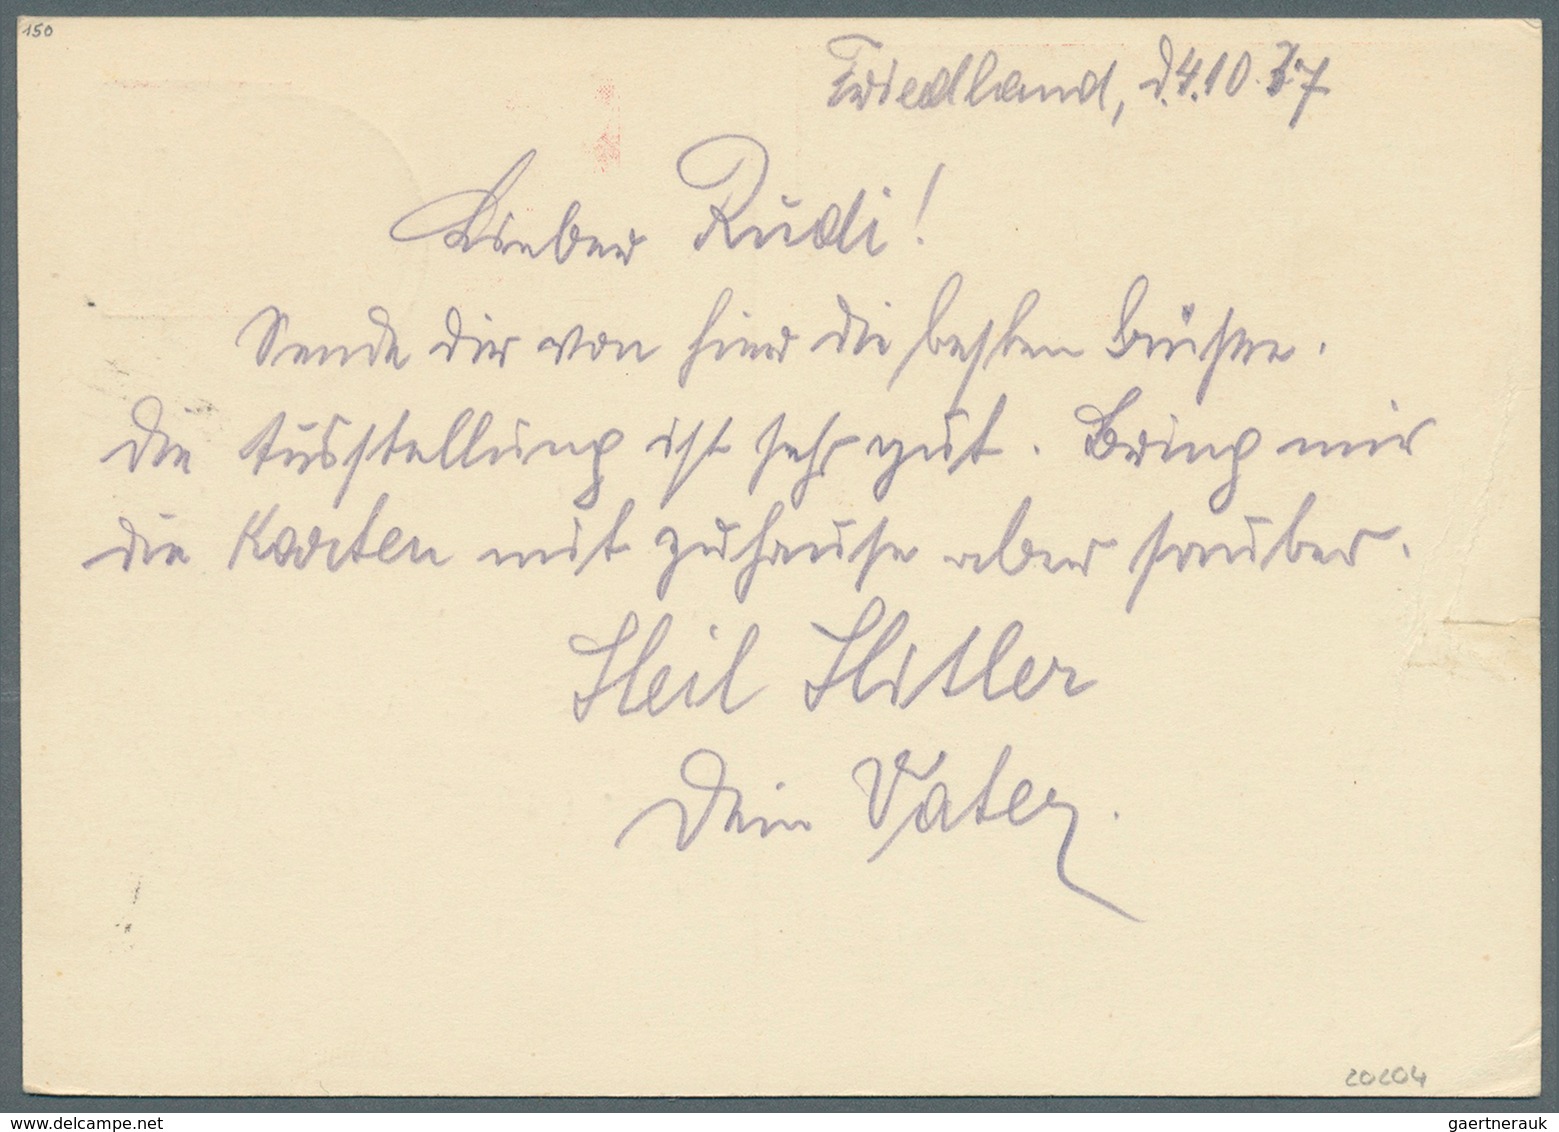 150
Friedland, d. 4.10.37
Lieber Rudi!
Sende dir von hier die besten Grüße.
Die Ausstellung ist sehr gut. Bring mir
die Karten mit zuhause aber sauber.
Heil Hitler
Dein Vater.
20204
gaertnerauk